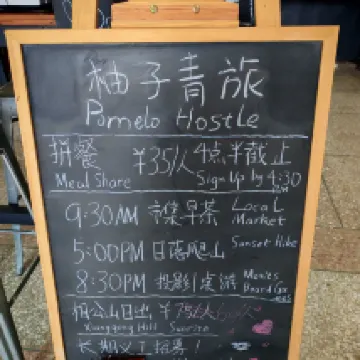 柚子青旅
Pomelo Hostle
拼餐 ¥35/人 4点半截止
Meal Share Sign Up by 4:30 PM
9:30AM 市集早茶 Local Market
5:00PM 日落爬山 Sunset Hike
8:30PM 投影|桌游 Movies Board Games
相公山日出 ¥75/人
Xianggong Hill Sunrise
长期义工招募!